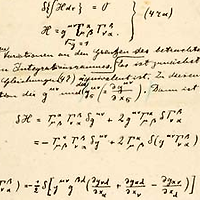 δ{∫H dτ} = 0
H = g^{μν} Γ^α_{μβ} Γ^β_{να} } (47a)
√-g = 1
Variationen an den Grenzen des betrachte
n Integrationsraumes. Es sei zunächst
Gleichungen (47) äquivalent ist. Zu diesem
tion der g^{μν} und (∂g^{μν}/∂x_σ). Dann ist
δH = Γ^α_{μβ} Γ^β_{να} δg^{μν} + 2g^{μν} Γ^α_{μβ} δΓ^β_{να}
= -Γ^α_{μβ} Γ^β_{να} δg^{μν} + 2Γ^α_{μβ} δ(g^{μν} Γ^β_{να})
Γ^β_{να}) = -½ δ[g^{μν} g^{βλ} (∂g_{νλ}/∂x_α + ∂g_{αλ}/∂x_ν - ∂g_{αν}/∂x_λ)]